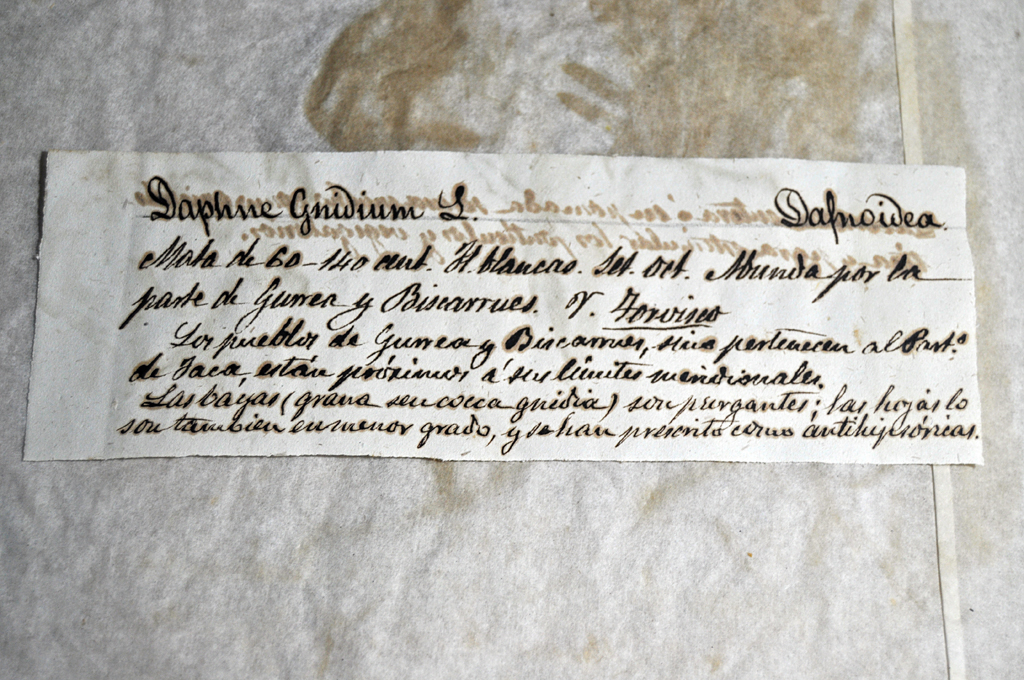 Daphne Gnidium L. Dafnoidea.
Mata de 60-140 cent. Fl. blancas. Set. Oct. Abunda por la
parte de Gurrea y Biscarrues. V. Torvisco
Los pueblos de Gurrea y Biscarrues, sino pertenecen al Part.º
de Jaca, están próximos á sus límites meridionales.
Las bayas (grana seu cocca gnidia) son purgantes; las hojas lo
son tambien en menor grado, y se han prescrito como antihipsóricas.